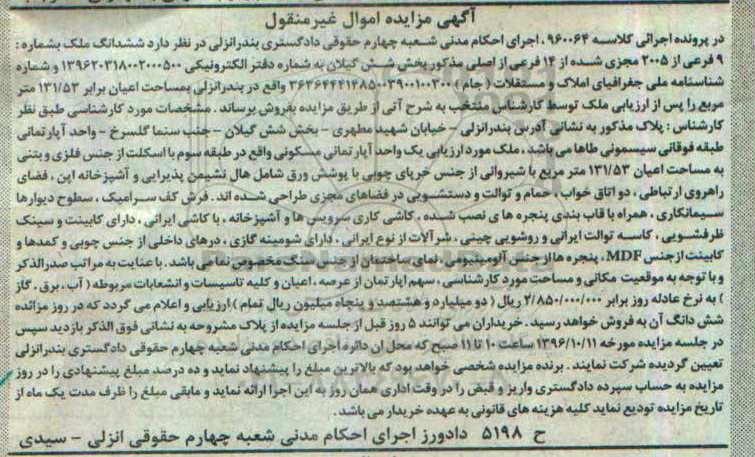 آگهی مزایده اموال غیرمنقول
در پرونده اجرائی کلاسه ۹۶۰۰۶۴ اجرای احکام مدنی شعبه چهارم حقوقی دادگستری بندرانزلی در نظر دارد ششدانگ ملک بشماره :
۹ فرعی از ۲۰۰۵ مجزی شده از ۱۴ فرعی از اصلی مذکور بخش شش گیلان به شماره دفتر الکترونیکی ۱۳۹۶۲۰۳۱۸۰۰۲۰۰۰۵۰۰ و شماره
شناسنامه ملی جغرافیای املاک و مستقلات ( جام ) ۳۶۳۶۴۴۴۱۴۸۵۰۰۳۹۰۰۱۰۰۳۰۰ واقع در بندرانزلی بمساحت اعیان برابر ۱۳۱/۵۳ متر
مربع را پس از ارزیابی ملک توسط کارشناس منتخب به شرح آتی از طریق مزایده بفروش برساند . مشخصات مورد کارشناسی طبق نظر
کارشناس : پلاک مذکور به نشانی آدرس بندرانزلی - خیابان شهید مطهری - بخش شش گیلان - جنب سنما گلسرخ - واحد آپارتمانی
طبقه فوقانی سیسمونی طاها می باشد . ملک مورد ارزیابی یک واحد آپارتمانی مسکونی واقع در طبقه سوم با اسکلت از جنس فلزی و بتنی
به مساحت اعیان ۱۳۱/۵۳ متر مربع با شیروانی از جنس خرپای چوبی با پوشش ورق شامل هال نشیمن پذیرایی و آشپزخانه اپن ، فضای
راهروی ارتباطی ، دو اتاق خواب ، حمام و توالت و دستشویی در فضاهای مجزی طراحی شده اند . فرش کف سرامیک ، سطوح دیوارها
سیمانکاری ، همراه با قاب بندی پنجره ها ی نصب شده ، کاشی کاری سرویس ها و آشپزخانه ، با کاشی ایرانی ، دارای کابینت و سینک
ظرفشویی ، کاسه توالت ایرانی و روشویی چینی ، شر آلات از نوع ایرانی ، دارای شومینه گازی ، درهای داخلی از جنس چوبی و کمدها و
کابینت از جنس MDF ، پنجره ها از جنس آلومینیومی ، نمای ساختمان از جنس سنگ مخصوص نما می باشد . با عنایت به مراتب صدرالذکر
و با توجه به موقعیت مکانی و مساحت مورد کارشناسی ، سهم آپارتمان از عرصه ، اعیان و کلیه تاسیسات و انشعابات مربوطه ( آب ، برق ، گاز
) به نرخ عادله روز برابر ۲/۸۵۰/۰۰۰/۰۰۰ ریال ( دو میلیارد و هشتصد و پنجاه میلیون ریال تمام ) ارزیابی و اعلام می گردد که در روز مزائده
شش دانگ آن به فروش خواهد رسید . خریداران می توانند ۵ روز قبل از جلسه مزایده از پلاک مشروحه به نشانی فوق الذکر بازدید سپس
در جلسه مزایده مورخه ۱۳۹۶/۱۰/۱۱ ساعت ۱۰ تا ۱۱ صبح که محل ان دائره اجرای احکام مدنی شعبه چهارم حقوقی دادگستری بندرانزلی
تعیین گردیده شرکت نمایند . برنده مزایده شخصی خواهد بود که بالاترین مبلغ را پیشنهاد نماید و ده درصد مبلغ پیشنهادی را در روز
مزایده به حساب سپرده دادگستری واریز و قبض را در وقت اداری همان روز به این اجرا ارائه نماید و مابقی مبلغ را ظرف مدت یک ماه از
تاریخ مزایده تودیع نماید کلیه هزینه های قانونی به عهده خریدار می باشد .
ح ۵۱۹۸ دادورز اجرای احکام مدنی شعبه چهارم حقوقی انزلی - سیدی